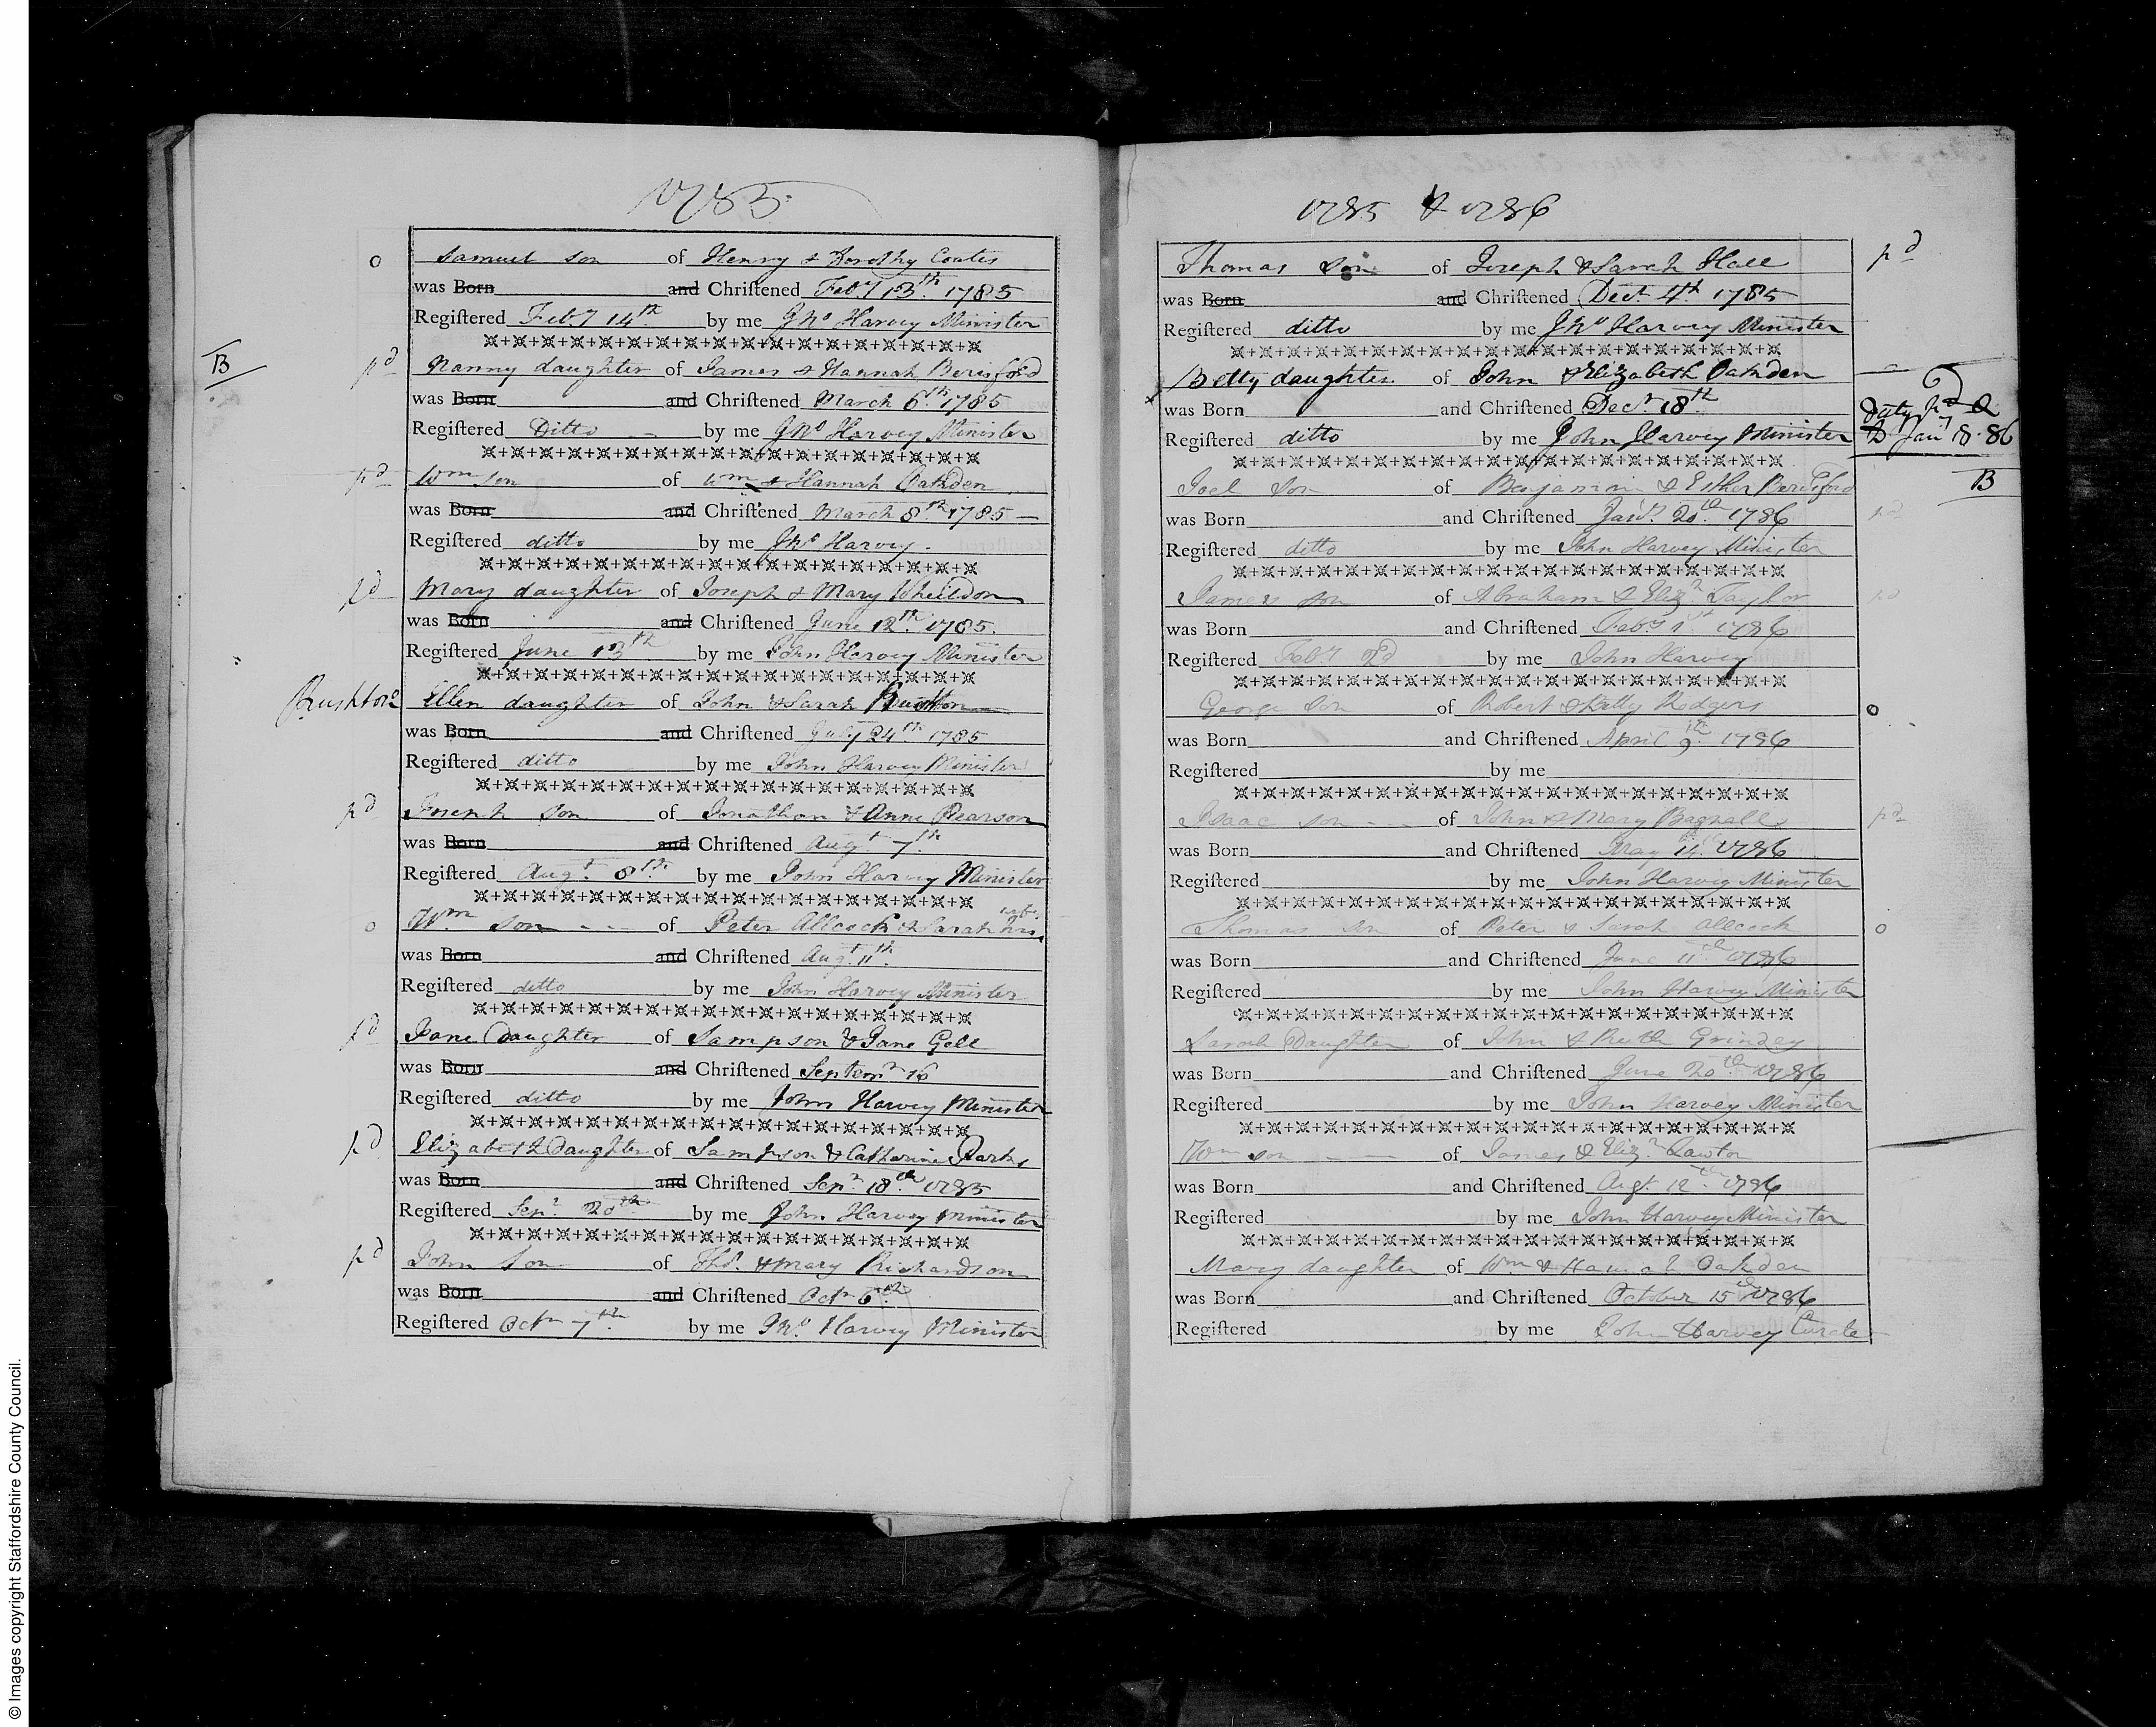 1785
o Samuel son of Henry & Dorothy Coates
was Born and Christened Feby 13th. 1785
Registered Feby 14th. by me Jno Harvey Minister
B pd Nanny daughter of James & Hannah Beresford
was Born and Christened March 6th. 1785
Registered Ditto by me Jno Harvey Minister
pd Wm son of Wm & Hannah Oakden
was Born and Christened March 8th. 1785
Registered ditto by me Jno Harvey.
pd Mary daughter of Joseph & Mary Wheildon
was Born and Christened June 12th. 1785.
Registered June 13th by me John Harvey Minister
Rushton Ellen daughter of John & Sarah Rushton
was Born and Christened July 24th 1785
Registered ditto by me John Harvey Minister
pd Joseph son of Jonathan & Anne Pearson
was Born and Christened Augt. 7th
Registered Augt. 8th. by me John Harvey Minister
o Wm son of Peter Allcock & Sarah his wife
was Born and Christened Augt 11th.
Registered ditto by me John Harvey Minister
pd Jane Daughter of Sampson & Jane Gell
was Born and Christened Septemr 16
Registered ditto by me John Harvey Minister
pd Elizabeth Daughter of Sampson & Catharine Parks
was Born and Christened Sepr. 18th. 1785
Registered Sepr. 20th by me John Harvey Minister
pd John Son of Thos. & Mary Richardson
was Born and Christened Octr 6th
Registered Octr 7th. by me Jno. Harvey Minister
1785 & 1786
Thomas Son of Joseph & Sarah Hall pd
was Born and Christened Decr. 4th. 1785
Registered ditto by me Jno Harvey Minister
Betty daughter of John & Elizabeth Oakden
was Born and Christened Decr. 18th. Duty pd
Registered ditto by me John Harvey Minister Jany 18. 86
Joel Son of Benjamin & Esther Beresford B
was Born and Christened Jany. 20th. 1786 pd
Registered ditto by me John Harvey Minister
James son of Abraham & Elizh Taylor pd
was Born and Christened Feby 1st 1786
Registered Feby 2d by me John Harvey
George Son of Robert & Hodgers o
was Born and Christened April 9th. 1786
Registered by me
Isaac son of John & Mary Bagnall pd
was Born and Christened May 14. 1786
Registered by me John Harvey Minister
Thomas son of Peter & Sarah Allcock o
was Born and Christened June 11th 1786
Registered by me John Harvey Minister
Sarah Daughter of John & Ruth Grindey
was Born and Christened June 20th 1786
Registered by me John Harvey Minister
Wm son of James & Elizh. Lawton
was Born and Christened Augt. 12th 1786
Registered by me John Harvey Minister
Mary daughter of Wm & Hannah Oakden
was Born and Christened October 15th 1786
Registered by me John Harvey Curate
© Images copyright Staffordshire County Council.